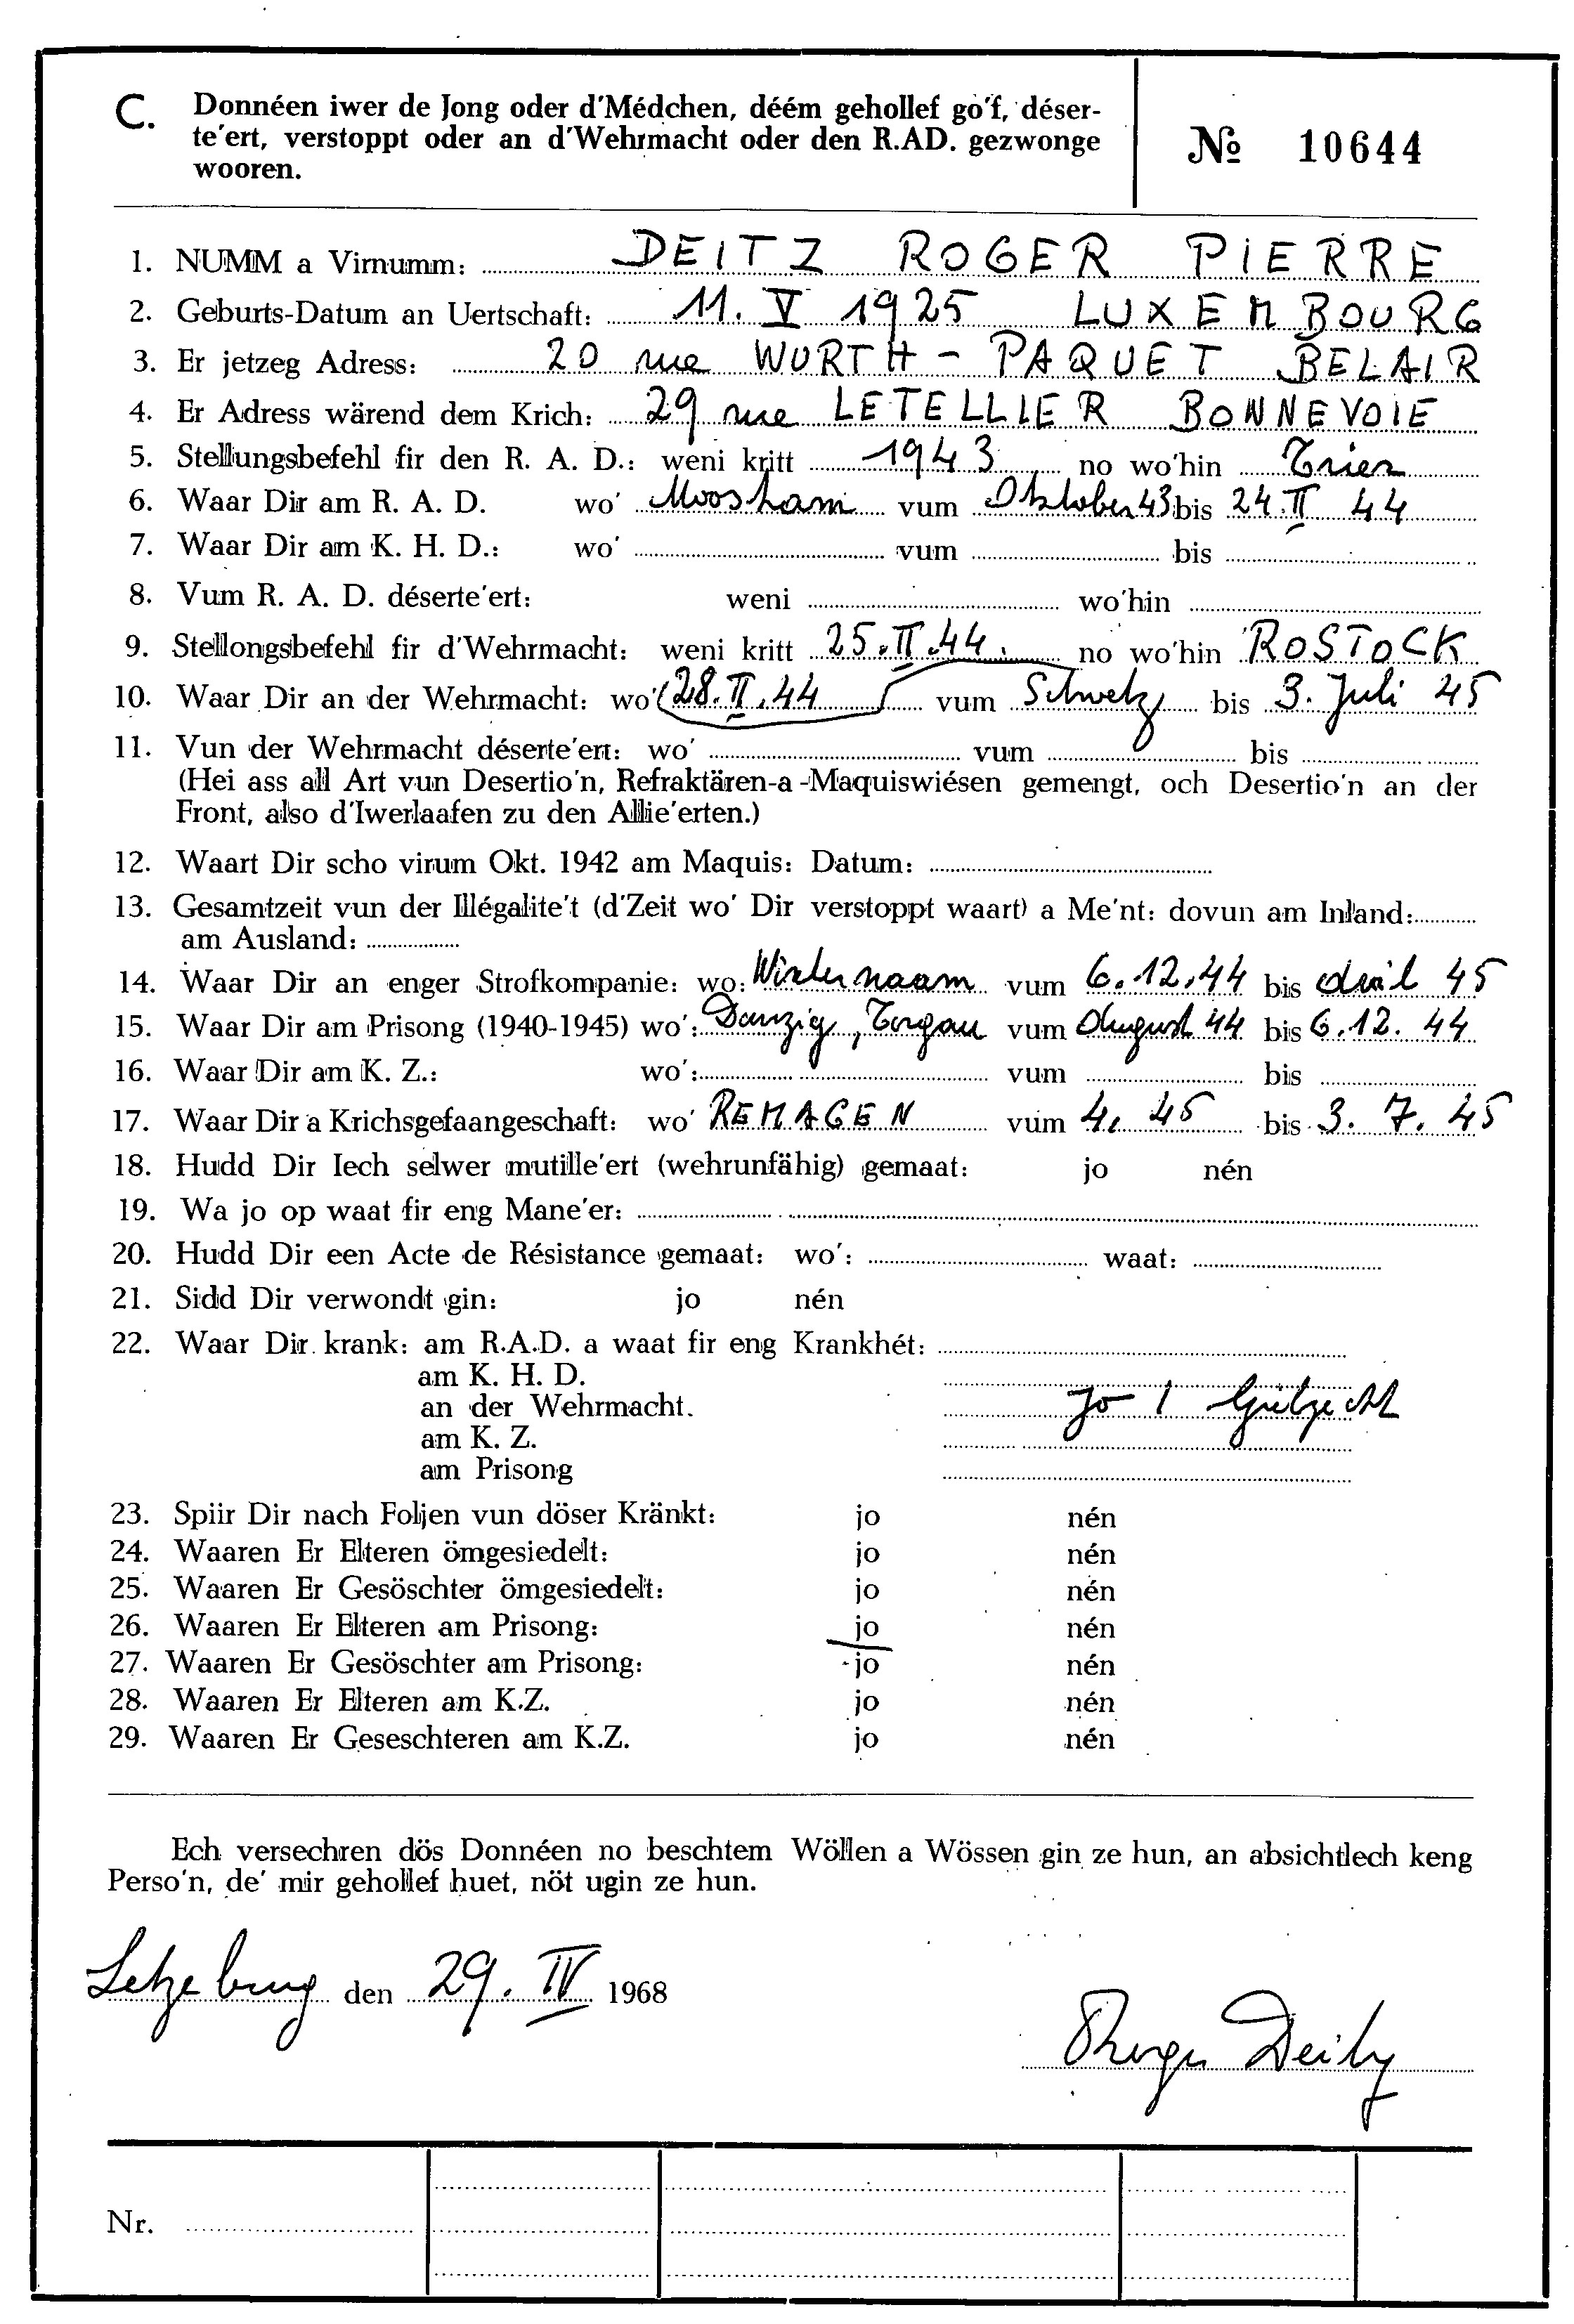 C. Donnéen iwer de Jong oder d'Médchen, déém gehollef go'f, déser-
te'ert, verstoppt oder an d'Wehrmacht oder den R.AD. gezwonge
wooren.
№ 10644
1. NUMM a Virnumm: DEITZ ROGER PIERRE
2. Geburts-Datum an Uertschaft: 11. V 1925 LUXEMBOURG
3. Er jetzeg Adress: 20 rue WURTH - PAQUET BELAIR
4. Er Adress wärend dem Krich: 29 rue LETELLIER BONNEVOIE
5. Stellungsbefehl fir den R. A. D.: weni kritt 1943 no wo'hin Trier
6. Waar Dir am R. A. D. wo' Moosham vum Oktober 43 bis 24.II 44
7. Waar Dir am K. H. D.: wo' vum bis
8. Vum R. A. D. déserte'ert: weni wo'hin
9. Stellongsbefehl fir d'Wehrmacht: weni kritt 25.II.44. no wo'hin ROSTOCK
10. Waar Dir an der Wehrmacht: wo' (28.II.44 vum Schwetz bis 3. Juli 45
11. Vun der Wehrmacht déserte'ert: wo' vum bis
(Hei ass all Art vun Desertio'n, Refraktären-a-Maquiswiésen gemengt, och Desertio'n an der
Front, also d'Iwerlaafen zu den Allie'erten.)
12. Waart Dir scho virum Okt. 1942 am Maquis: Datum:
13. Gesamtzeit vun der Illégalite't (d'Zeit wo' Dir verstoppt waart) a Me'nt: dovun am Inland:
am Ausland:
14. Waar Dir an enger Strofkompanie: wo: vum 6.12.44 bis 45
15. Waar Dir am Prisong (1940-1945) wo': Danzig, Torgau vum August 44 bis 6.12. 44
16. Waar Dir am K. Z.: wo': vum bis
17. Waar Dir a Krichsgefaangeschaft: wo' REMAGEN vum 4. 45 bis 3. 7. 45
18. Hudd Dir Iech selwer mutille'ert (wehrunfähig) gemaat: jo nén
19. Wa jo op waat fir eng Mane'er:
20. Hudd Dir een Acte de Résistance gemaat: wo': waat:
21. Sidd Dir verwondt gin: jo nén
22. Waar Dir krank: am R.A.D. a waat fir eng Krankhét:
am K. H. D.
an der Wehrmacht. Jo
am K. Z.
am Prisong
23. Spiir Dir nach Foljen vun döser Kränkt: jo nén
24. Waaren Er Elteren ömgesiedelt: jo nén
25. Waaren Er Gesöschter ömgesiedelt: jo nén
26. Waaren Er Elteren am Prisong: jo nén
27. Waaren Er Gesöschter am Prisong: jo nén
28. Waaren Er Elteren am K.Z. jo nén
29. Waaren Er Geseschteren am K.Z. jo nén
Ech versechren dös Donnéen no beschtem Wöllen a Wössen gin ze hun, an absichtlech keng
Perso'n, de' mir gehollef huet, nöt ugin ze hun.
Letzeburg den 29. IV 1968
Roger Deitz
Nr.